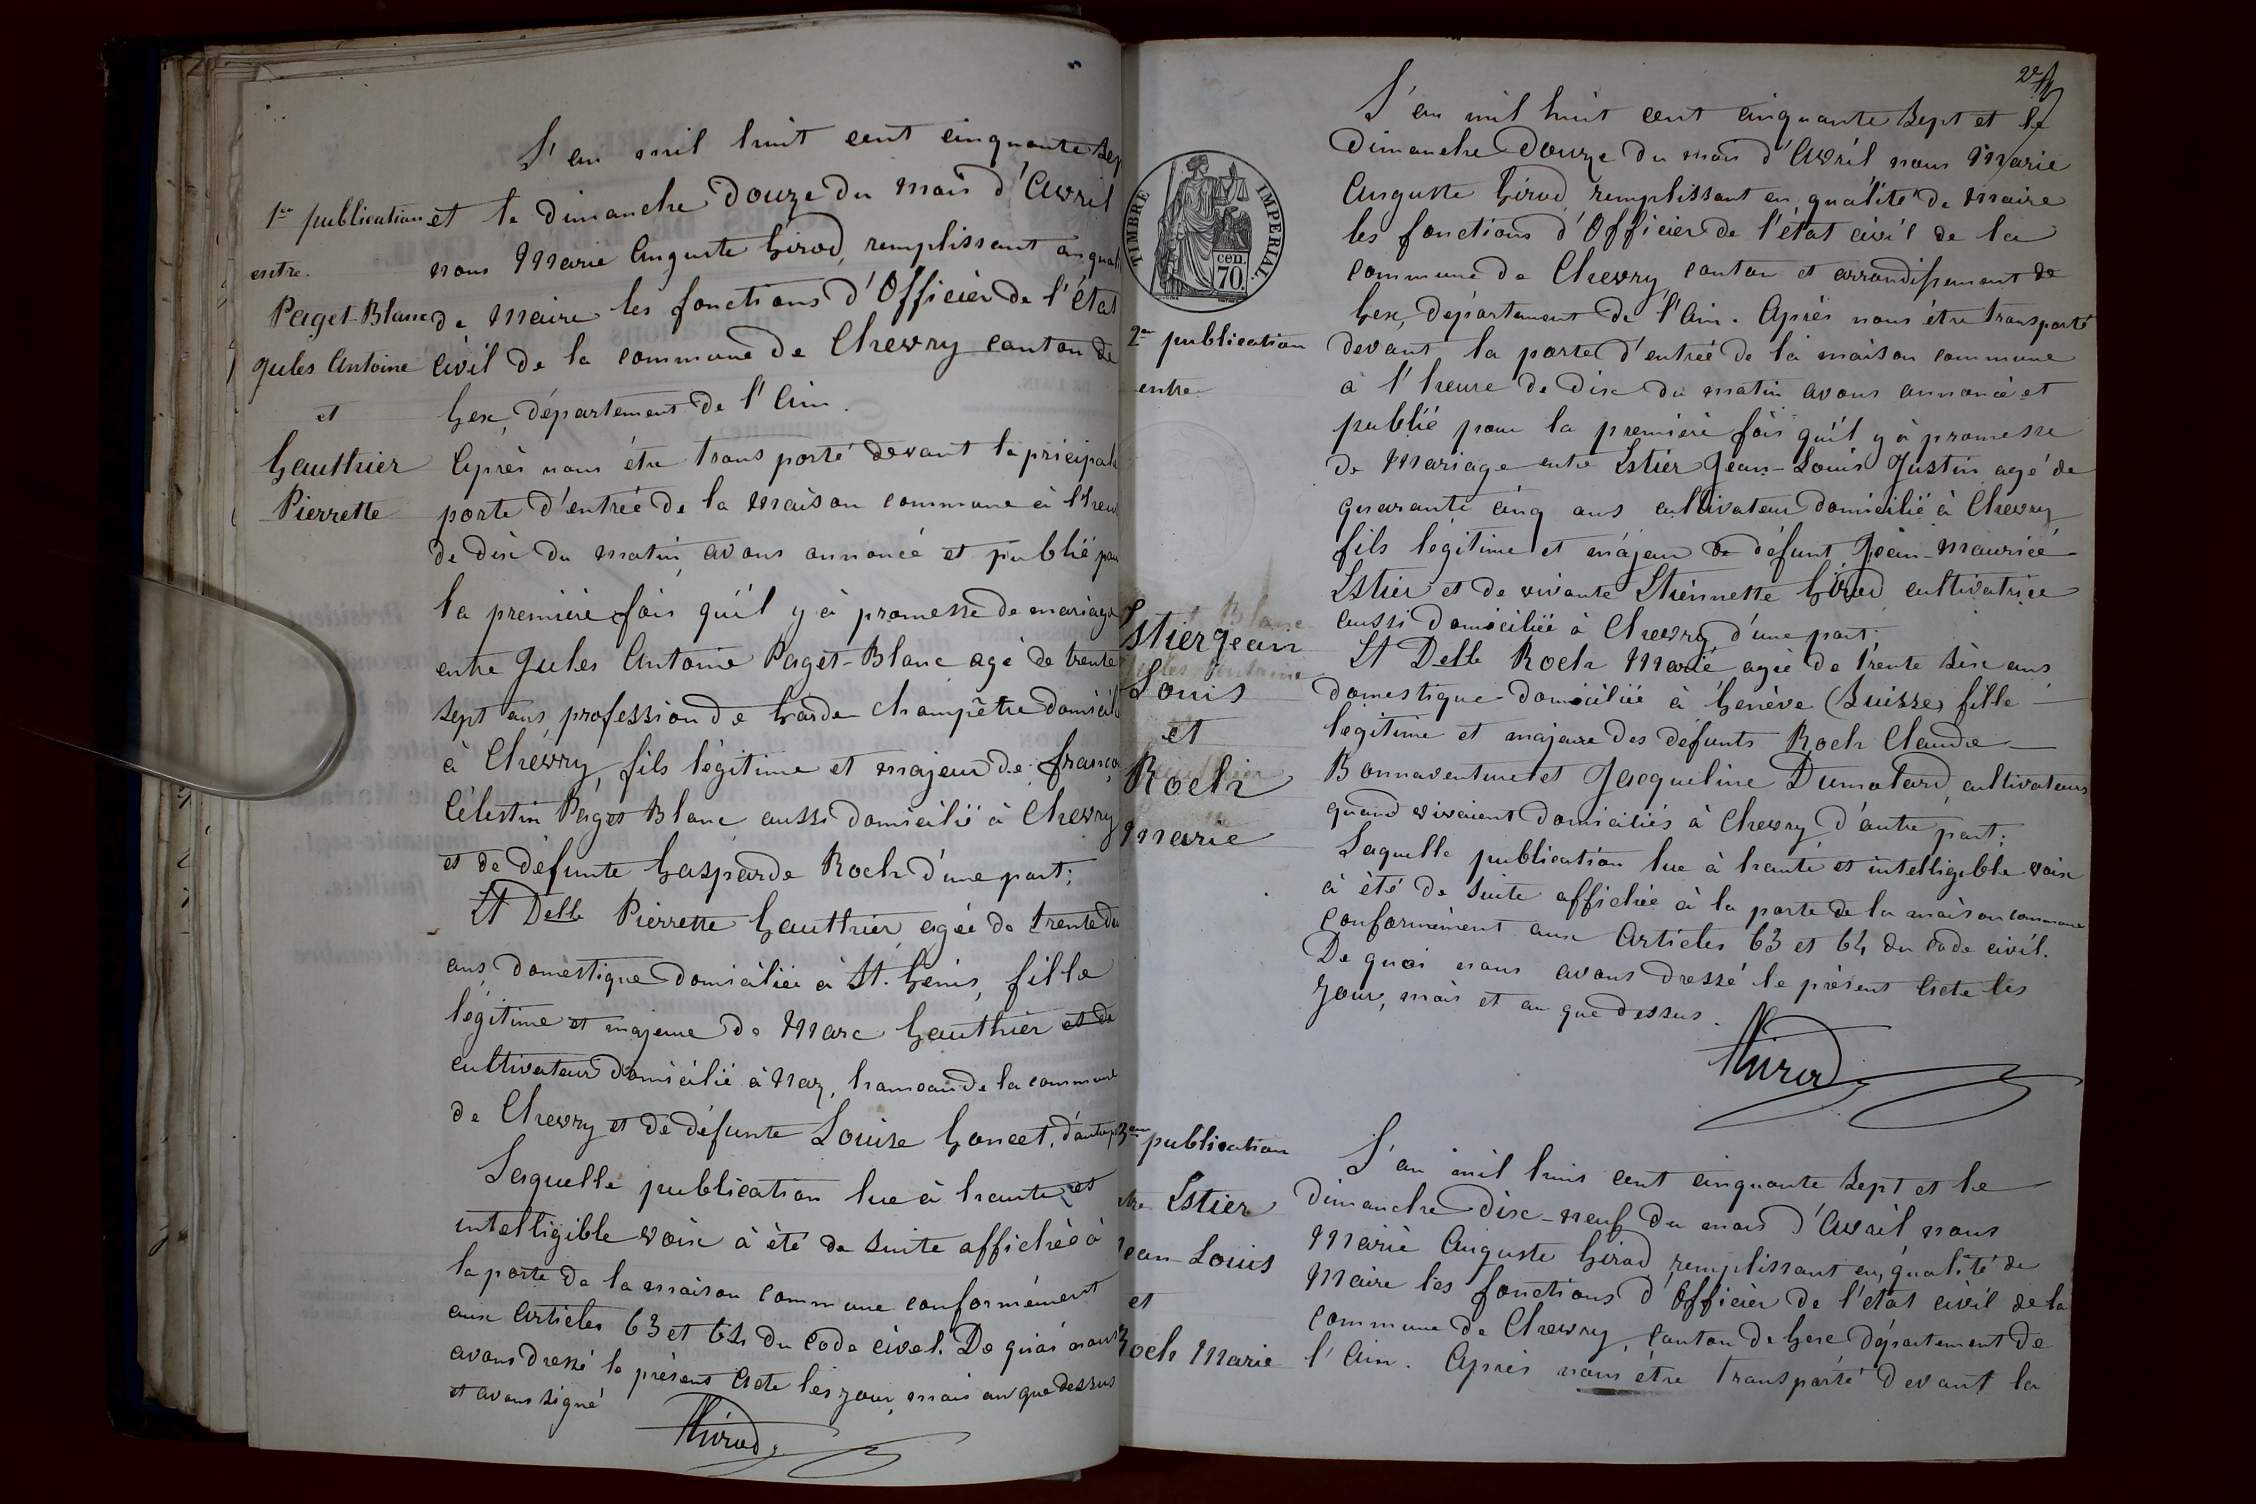 L'an mil huit cent cinquante sep
1re publication
entre
Paget-Blanc
Jules Antoine
et
Gauthier
Pierrette
et le dimanche Douze du mois d'Avril
nous Marie Auguste Girod, remplissant en qual
de Maire les fonctions d'Officier de l'État
civil de la commune de Chevry canton de
Gex, département de l'Ain.
Après nous être transporté devant la pricipale
porte d'entrée de la Maison commune à l'heur
de dix du matin, avons annoncé et publié pour
la première fois qu'il y à promesse de mariage
entre Jules Antoine Paget-Blanc agé de trente
sept ans, profession de Garde-Champêtre domicil
à Chevry, fils légitime et majeur de françoi
Célestin Paget Blanc aussi domicilié à Chevry
et de défunte Gasparde Roch d'une part;
Et Delle Pierrette Gauthier agée de trente de
ans, domestique domiciliée à St. Genis, fille
légitime et majeure de Marc Gauthier et de
cultivateur domicilié à Naz, hameau de la commune
de Chevry et de défunte Louise Goncet, d'autre p
Laquelle publication lue à haute et
intelligible voix à été de suite affichée à
la porte de la maison commune conformément
aux Articles 63 et 64 du Code civel. De quoi nous
avons dressé le présent Acte les jour, mois an que dessus
et avons signé
AGirod
2e
TIMBRE IMPERIAL.
cen.
70.
2e publication
entre
Estier Jean
Louis
et
Roch
Marie
L'an mil huit cent cinquante sept et le
Dimanche Douze du mois d'Avril nous Marie
Auguste Girod, remplissant en qualité de Maire
les fonctions d'Officier de l'état civil de la
commune de Chevry, canton et arrondissement de
Gex, département de l'Ain. Après nous être transporté
devant la porte d'entrée de la maison commune
à l'heure de dix du matin avons annoncé et
publié pour la première fois qu'il y à promesse
de Mariage entre Estier Jean-Louis Justin agé de
quarante cinq ans cultivateur domicilié à Chevry
fils légitime et majeur de défunt Jean-Maurice
Estier et de vivante Etiennette Girod cultivatrice
aussi domiciliée à Chevry d'une part;
Et Delle Roch Marie agée de trente six ans
domestique domiciliée à Genève (Suisse) fille
légitime et majeure des défunts Roch Claude
Bonnaventure et Jacqueline Dumolard, cultivateurs
quand vivaient domiciliés à Chevry, d'autre part;
Laquelle publication lue à haute et intelligible voix
à été de suite affichée à la porte de la maison commune
conformément aux Articles 63 et 64 du code civil.
De quoi nous avons dressé le présent Acte les
jour, mois et an que dessus.
AGirod
3eme publication
Estier
Jean-Louis
et
Roch Marie
L'an mil huit cent cinquante sept et le
Dimanche dix-neuf du mois d'Avril nous
Marie Auguste Girod, remplissant en qualité de
Maire les fonctions d'Officier de l'état civil de la
commune de Chevry, canton de Gex département de
l'Ain. Après nous être transporté devant la